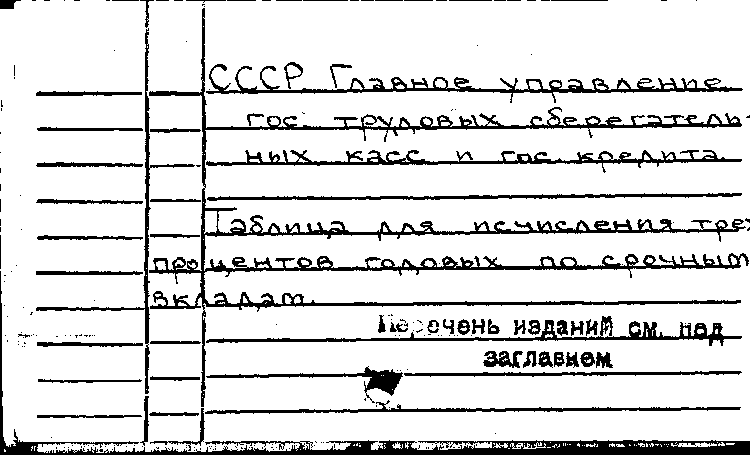 СССР Главное управление
гос. трудовых сберегатель-
ных касс и гос. кредита.
Таблица для исчисления трех
процентов годовых по срочным
вкладам.
Перечень изданий см. под
заглавием